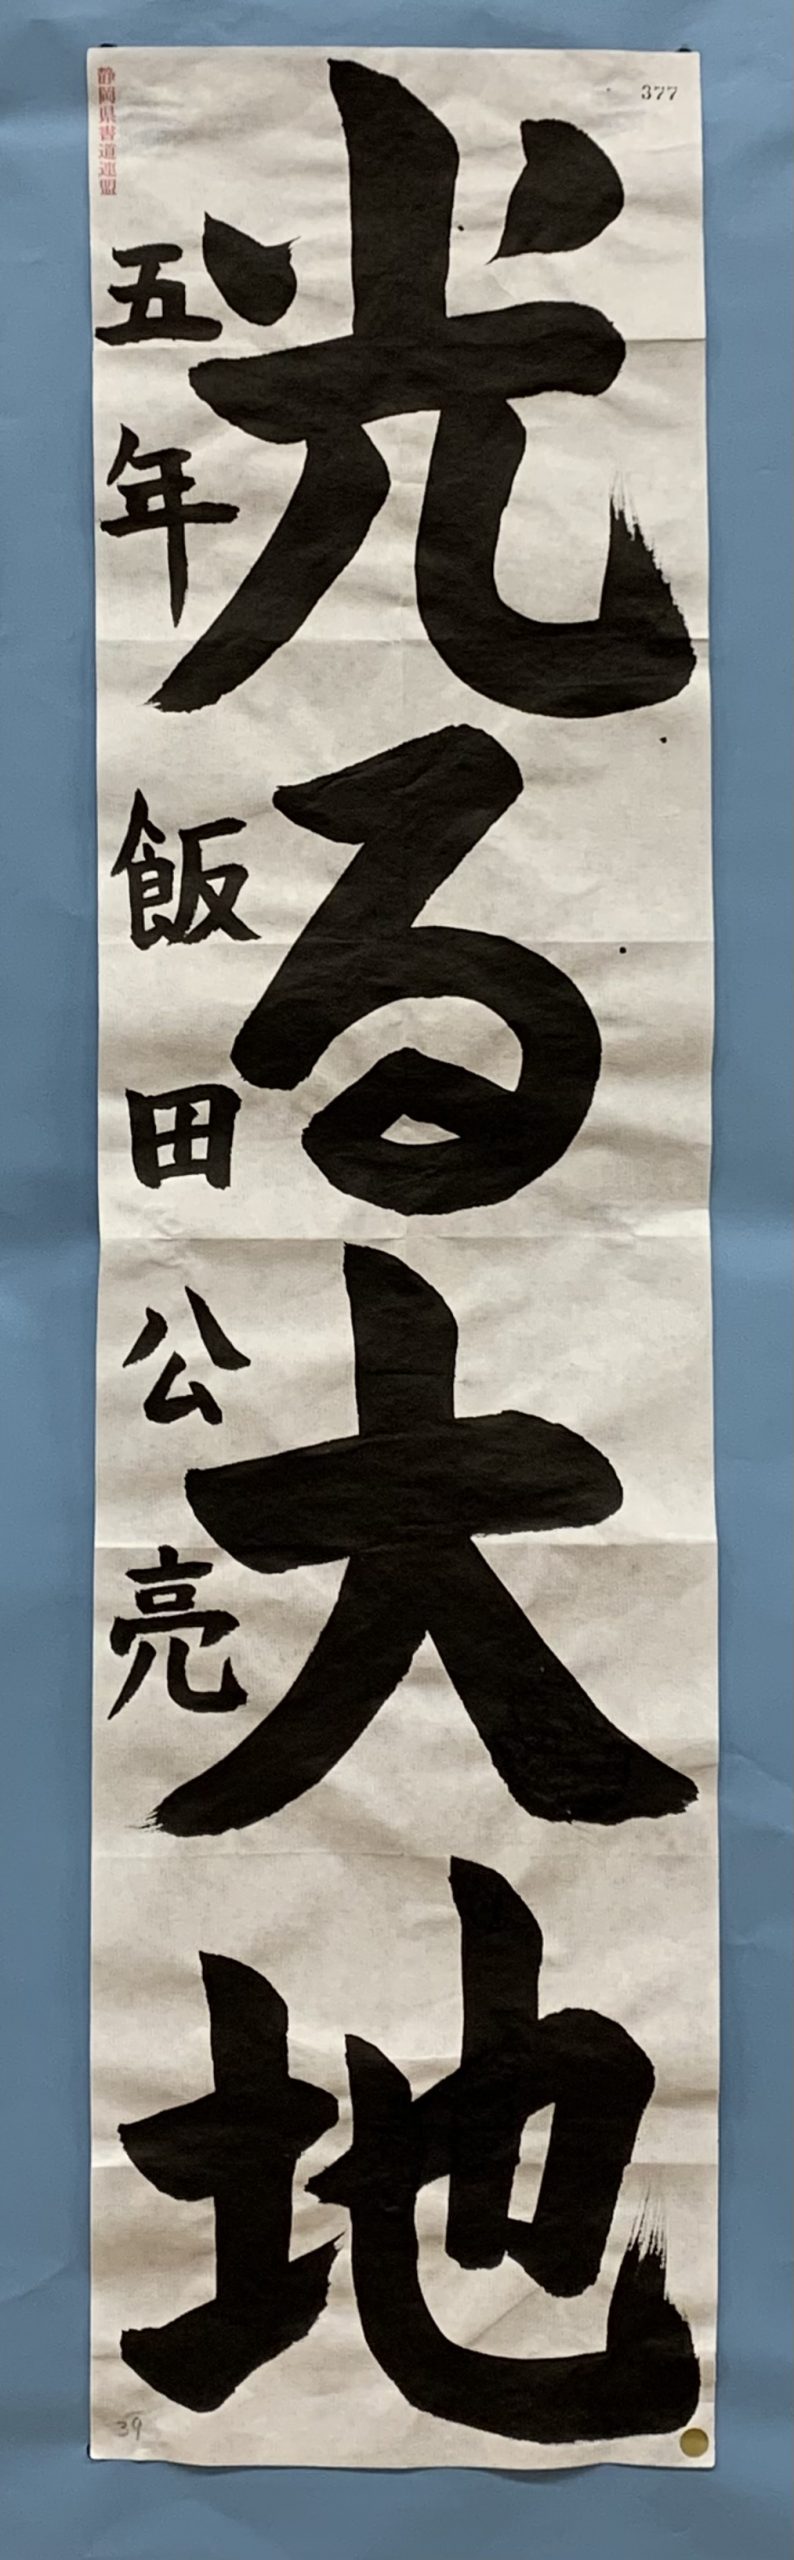 377
光る大地
五年 飯田公亮
静岡県書道連盟
39